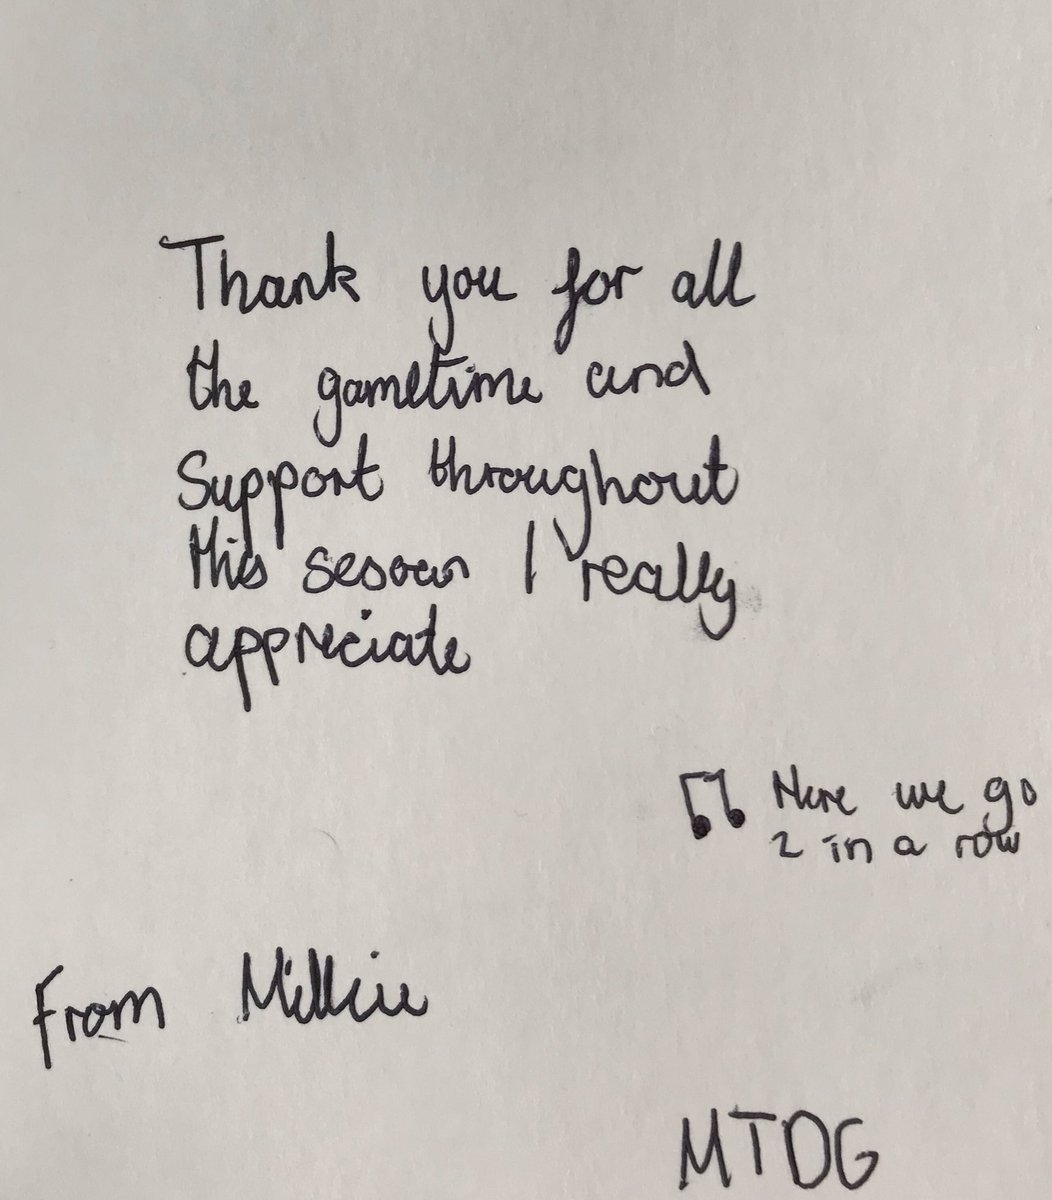 Thank you for all
the gametime and
Support throughout
this sesoan I really
appreciate
♫ Here we go
2 in a row
From Millie
MTDG